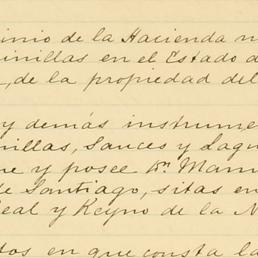 inio de la Hacienda n
inillas en el Estado d
, de la propiedad del
y demás instrume
nillas, Sauces y Lagu
ne y posee Dn. Manu
de Santiago, sitas en
Real y Reyno de la N
dos en que consta la